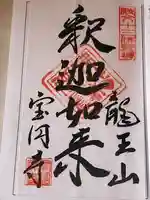 龍王山
釈迦如来
宝円寺